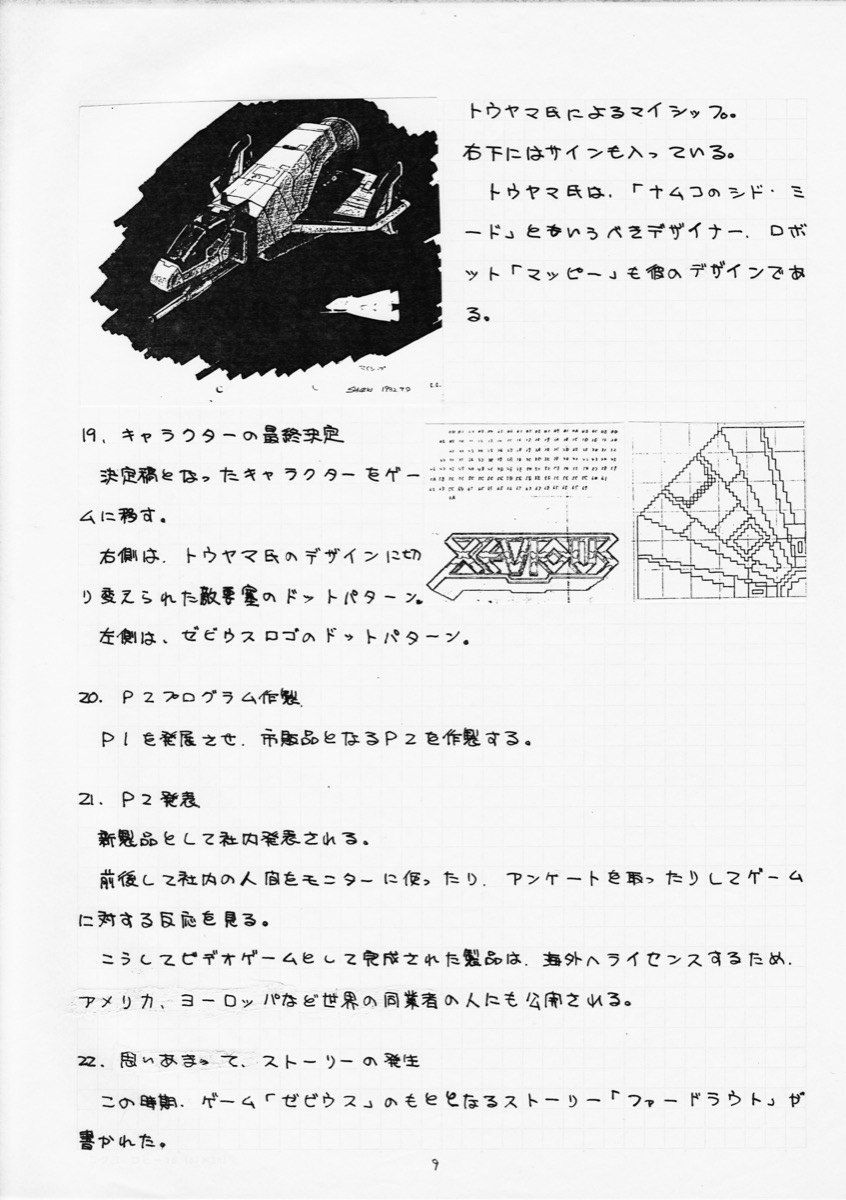 トウヤマ氏によるマイシップ。
右下にはサインも入っている。
トウヤマ氏は、「ナムコのシド・ミ
ード」ともいうべきデザイナー、ロボ
ット「マッピー」も彼のデザインであ
る。
マイシップ
1982.7.9
19、キャラクターの最終決定
決定稿となったキャラクターをゲー
ムに移す。
右側は、トウヤマ氏のデザインに切
り変えられた敵要塞のドットパターン。
左側は、ゼビウスロゴのドットパターン。
XEVIOUS
20、P2プログラム作製
P1を発展させ、市販品となるP2を作製する。
21、P2発表
新製品として社内発表される。
前後して社内の人間をモニターに使ったり、アンケートを取ったりしてゲーム
に対する反応を見る。
こうしてビデオゲームとして完成された製品は、海外へライセンスするため、
アメリカ、ヨーロッパなど世界の同業者の人にも公開される。
22、思いあまって、ストーリーの発生
この時期、ゲーム「ゼビウス」のもととなるストーリー「ファードラウト」が
書かれた。
9